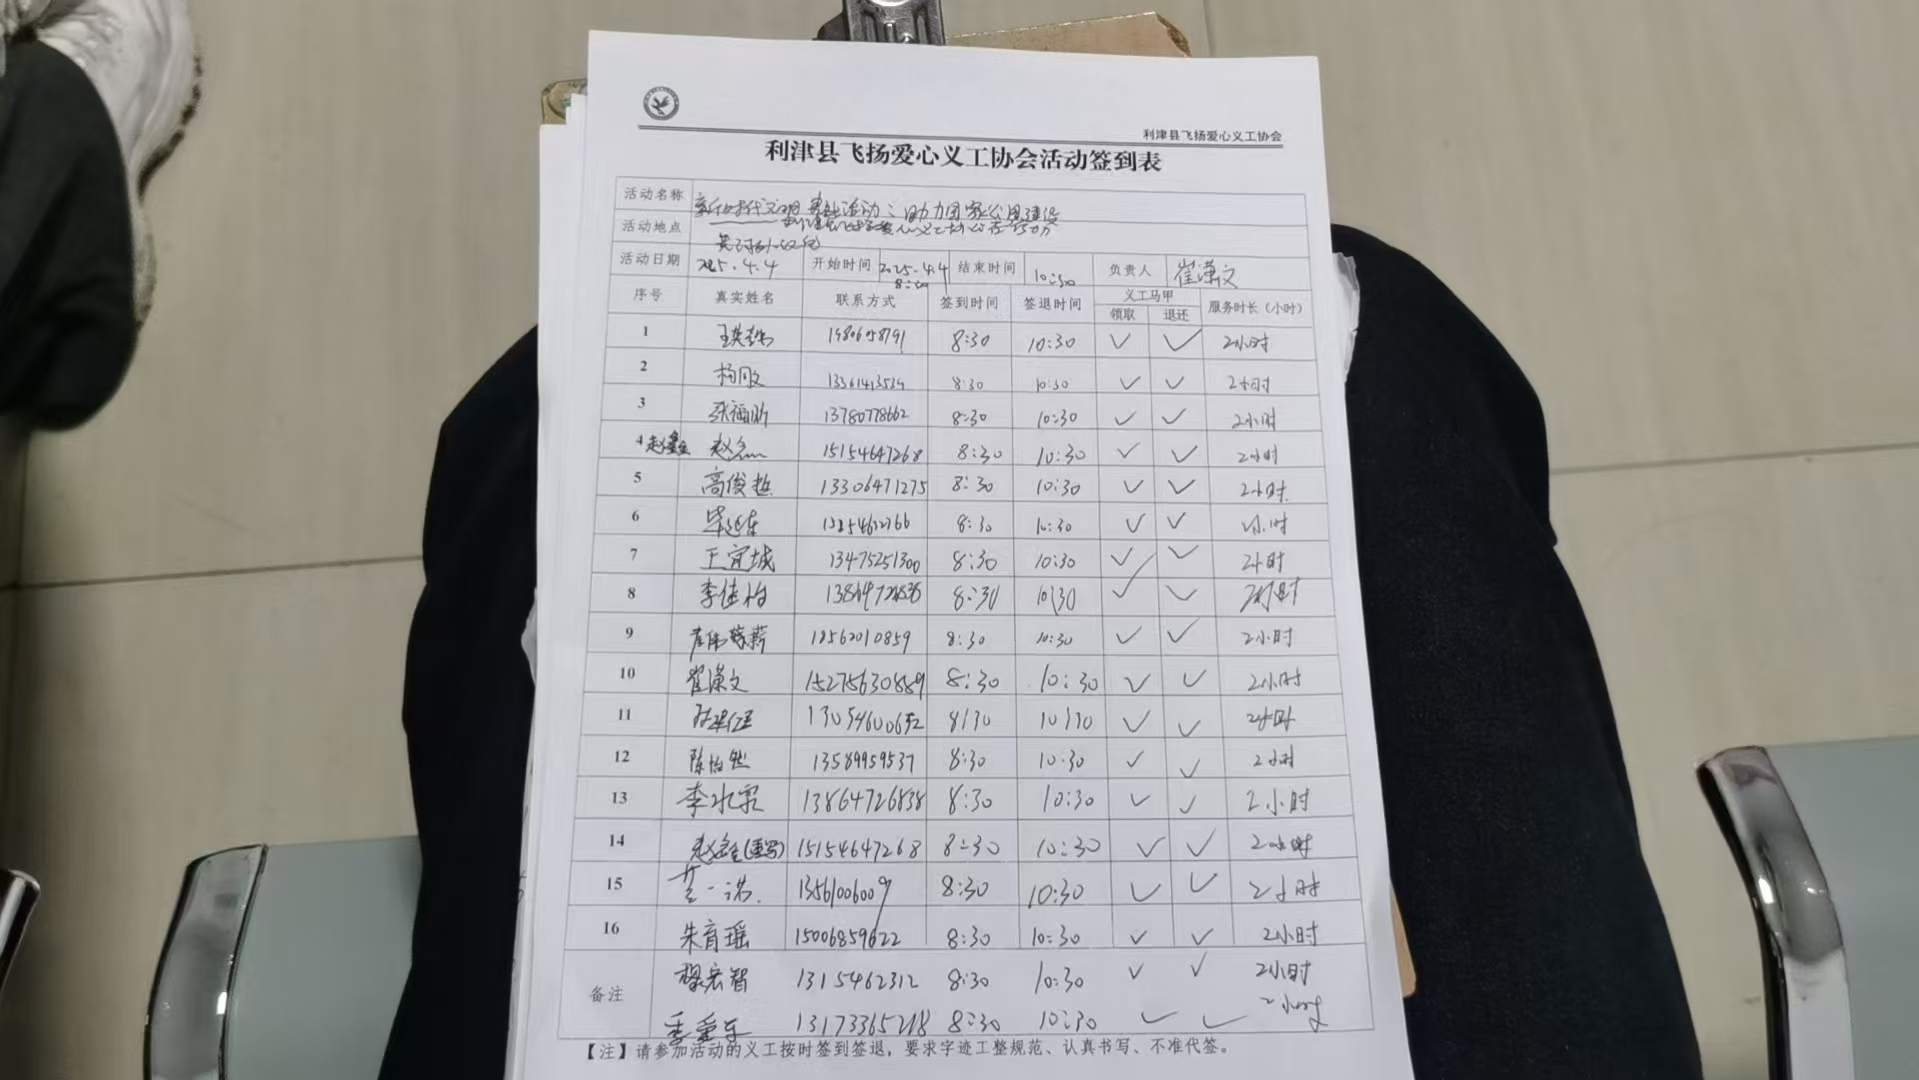 利津县飞扬爱心义工协会
利津县飞扬爱心义工协会活动签到表
活动名称 新时代文明 活动：助力国家公园建设
活动地点
活动日期 2025.4.4 开始时间 2025.4.4 8:30 结束时间 10:30 负责人 崔潇文
序号 真实姓名 联系方式 签到时间 签退时间 义工马甲 服务时长（小时）
领取 退还
1 8:30 10:30 ✓ ✓ 2小时
2 8:30 10:30 ✓ ✓ 2小时
3 张福昕 13780778662 8:30 10:30 ✓ ✓ 2小时
4 15154647268 8:30 10:30 ✓ ✓ 2小时
5 高俊哲 13306471275 8:30 10:30 ✓ ✓ 2小时
6 8:30 10:30 ✓ ✓ 小时
7 王宜城 13475251300 8:30 10:30 ✓ ✓ 2小时
8 李佳柏 8:30 10:30 ✓ ✓ 2小时
9 18562010859 8:30 10:30 ✓ ✓ 2小时
10 崔潇文 15275630889 8:30 10:30 ✓ ✓ 2小时
11 8:30 10:30 ✓ ✓ 2小时
12 陈怡然 13589959537 8:30 10:30 ✓ ✓ 2小时
13 李水泉 13864726838 8:30 10:30 ✓ ✓ 2小时
14 (重写) 15154647268 8:30 10:30 ✓ ✓ 2小时
15 一诺 13561006009 8:30 10:30 ✓ ✓ 2小时
16 朱育瑶 15006859622 8:30 10:30 ✓ ✓ 2小时
备注 宏智 1315462312 8:30 10:30 ✓ ✓ 2小时
季爱东 13173365218 8:30 10:30 ✓ ✓ 2小时
【注】请参加活动的义工按时签到签退，要求字迹工整规范、认真书写、不准代签。